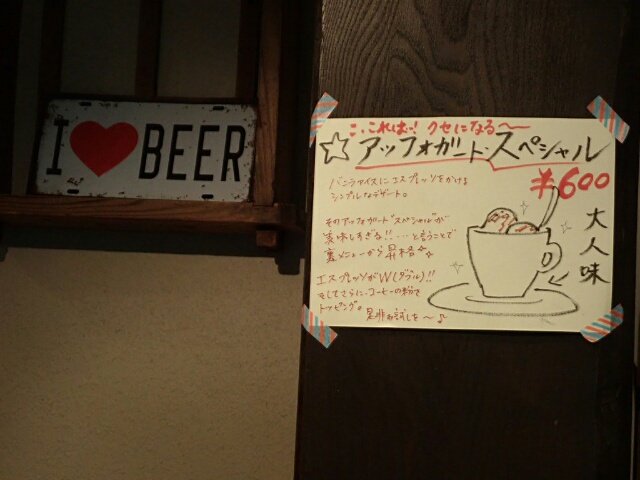 I ❤ BEER
こ、これはっ! クセになる〜
☆アッフォガート・スペシャル
¥600
バニラアイスにエスプレッソをかける
シンプルなデザート。
そのアッフォガート"スペシャル"が
美味しすぎな!!…と言うことで
裏メニューから昇格
エスプレッソがW(ダブル)!!
そしてさらに、コーヒーの粉で
トッピング。
是非お試しを〜♪
大人味